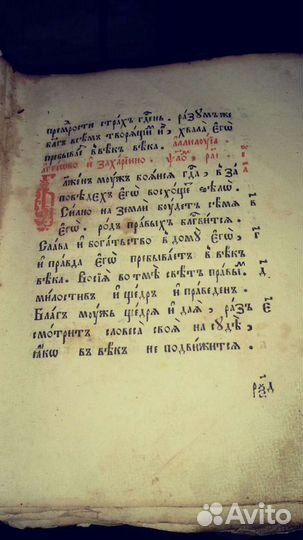 премрⷭ҇ости страⷯ гдⷭ҇ень. разꙋмъ же
блг҃ъ всѣмъ творѧщимъ и҆̀, хвала є҆гѡ̀
пребываетъ въ вѣкъ вѣка. аллилꙋіа
аггеѡво и҆ захаріино. ѱало́мъ, раі.
Блаженъ мꙋжъ боѧисѧ гдⷭ҇а, в за
повѣдехъ є҆гѡ̀ восхощетъ ѕѣлѡ̀.
Силно на земли бꙋдетъ сѣмѧ в
є҆гѡ̀. родъ правыхъ блг҃витсѧ.
Слава и҆ богатьство в домꙋ є҆гѡ̀, г
и҆ правда є҆гѡ̀ пребываетъ в вѣкъ
вѣка. Восіѧ̀ во тмѣ свѣтъ правы д
милостивъ и҆ щедръ и҆ праведенъ.
Благъ мꙋжъ щедрѧ и҆ даѧ̀, раз є
смотритъ словеса своѧ̀ на сꙋдѣ,
ꙗкѡ въ вѣкъ не подвижитсѧ.
Avito